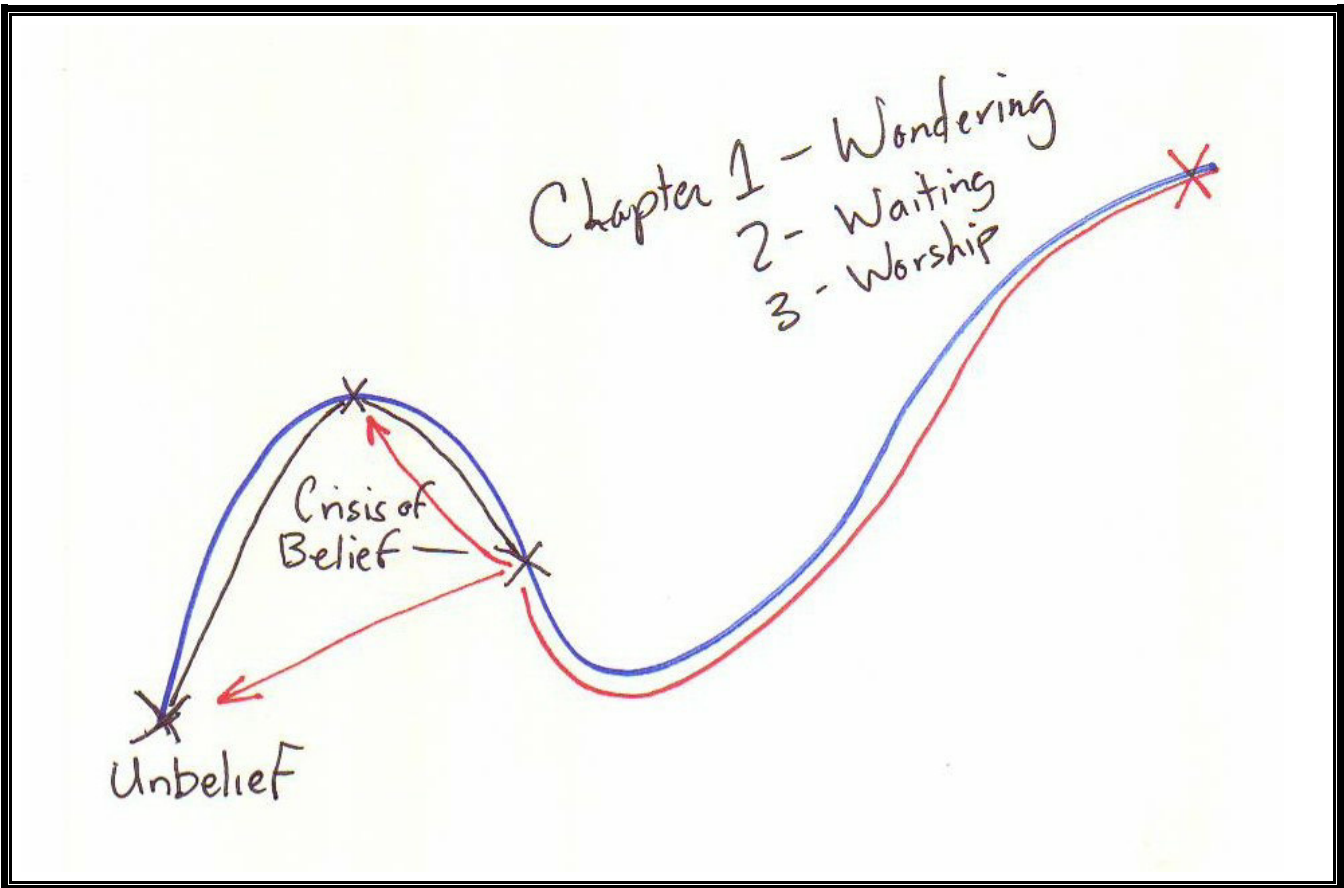 Chapter 1 - Wondering
2 - Waiting
3 - Worship
Crisis of
Belief
Unbelief